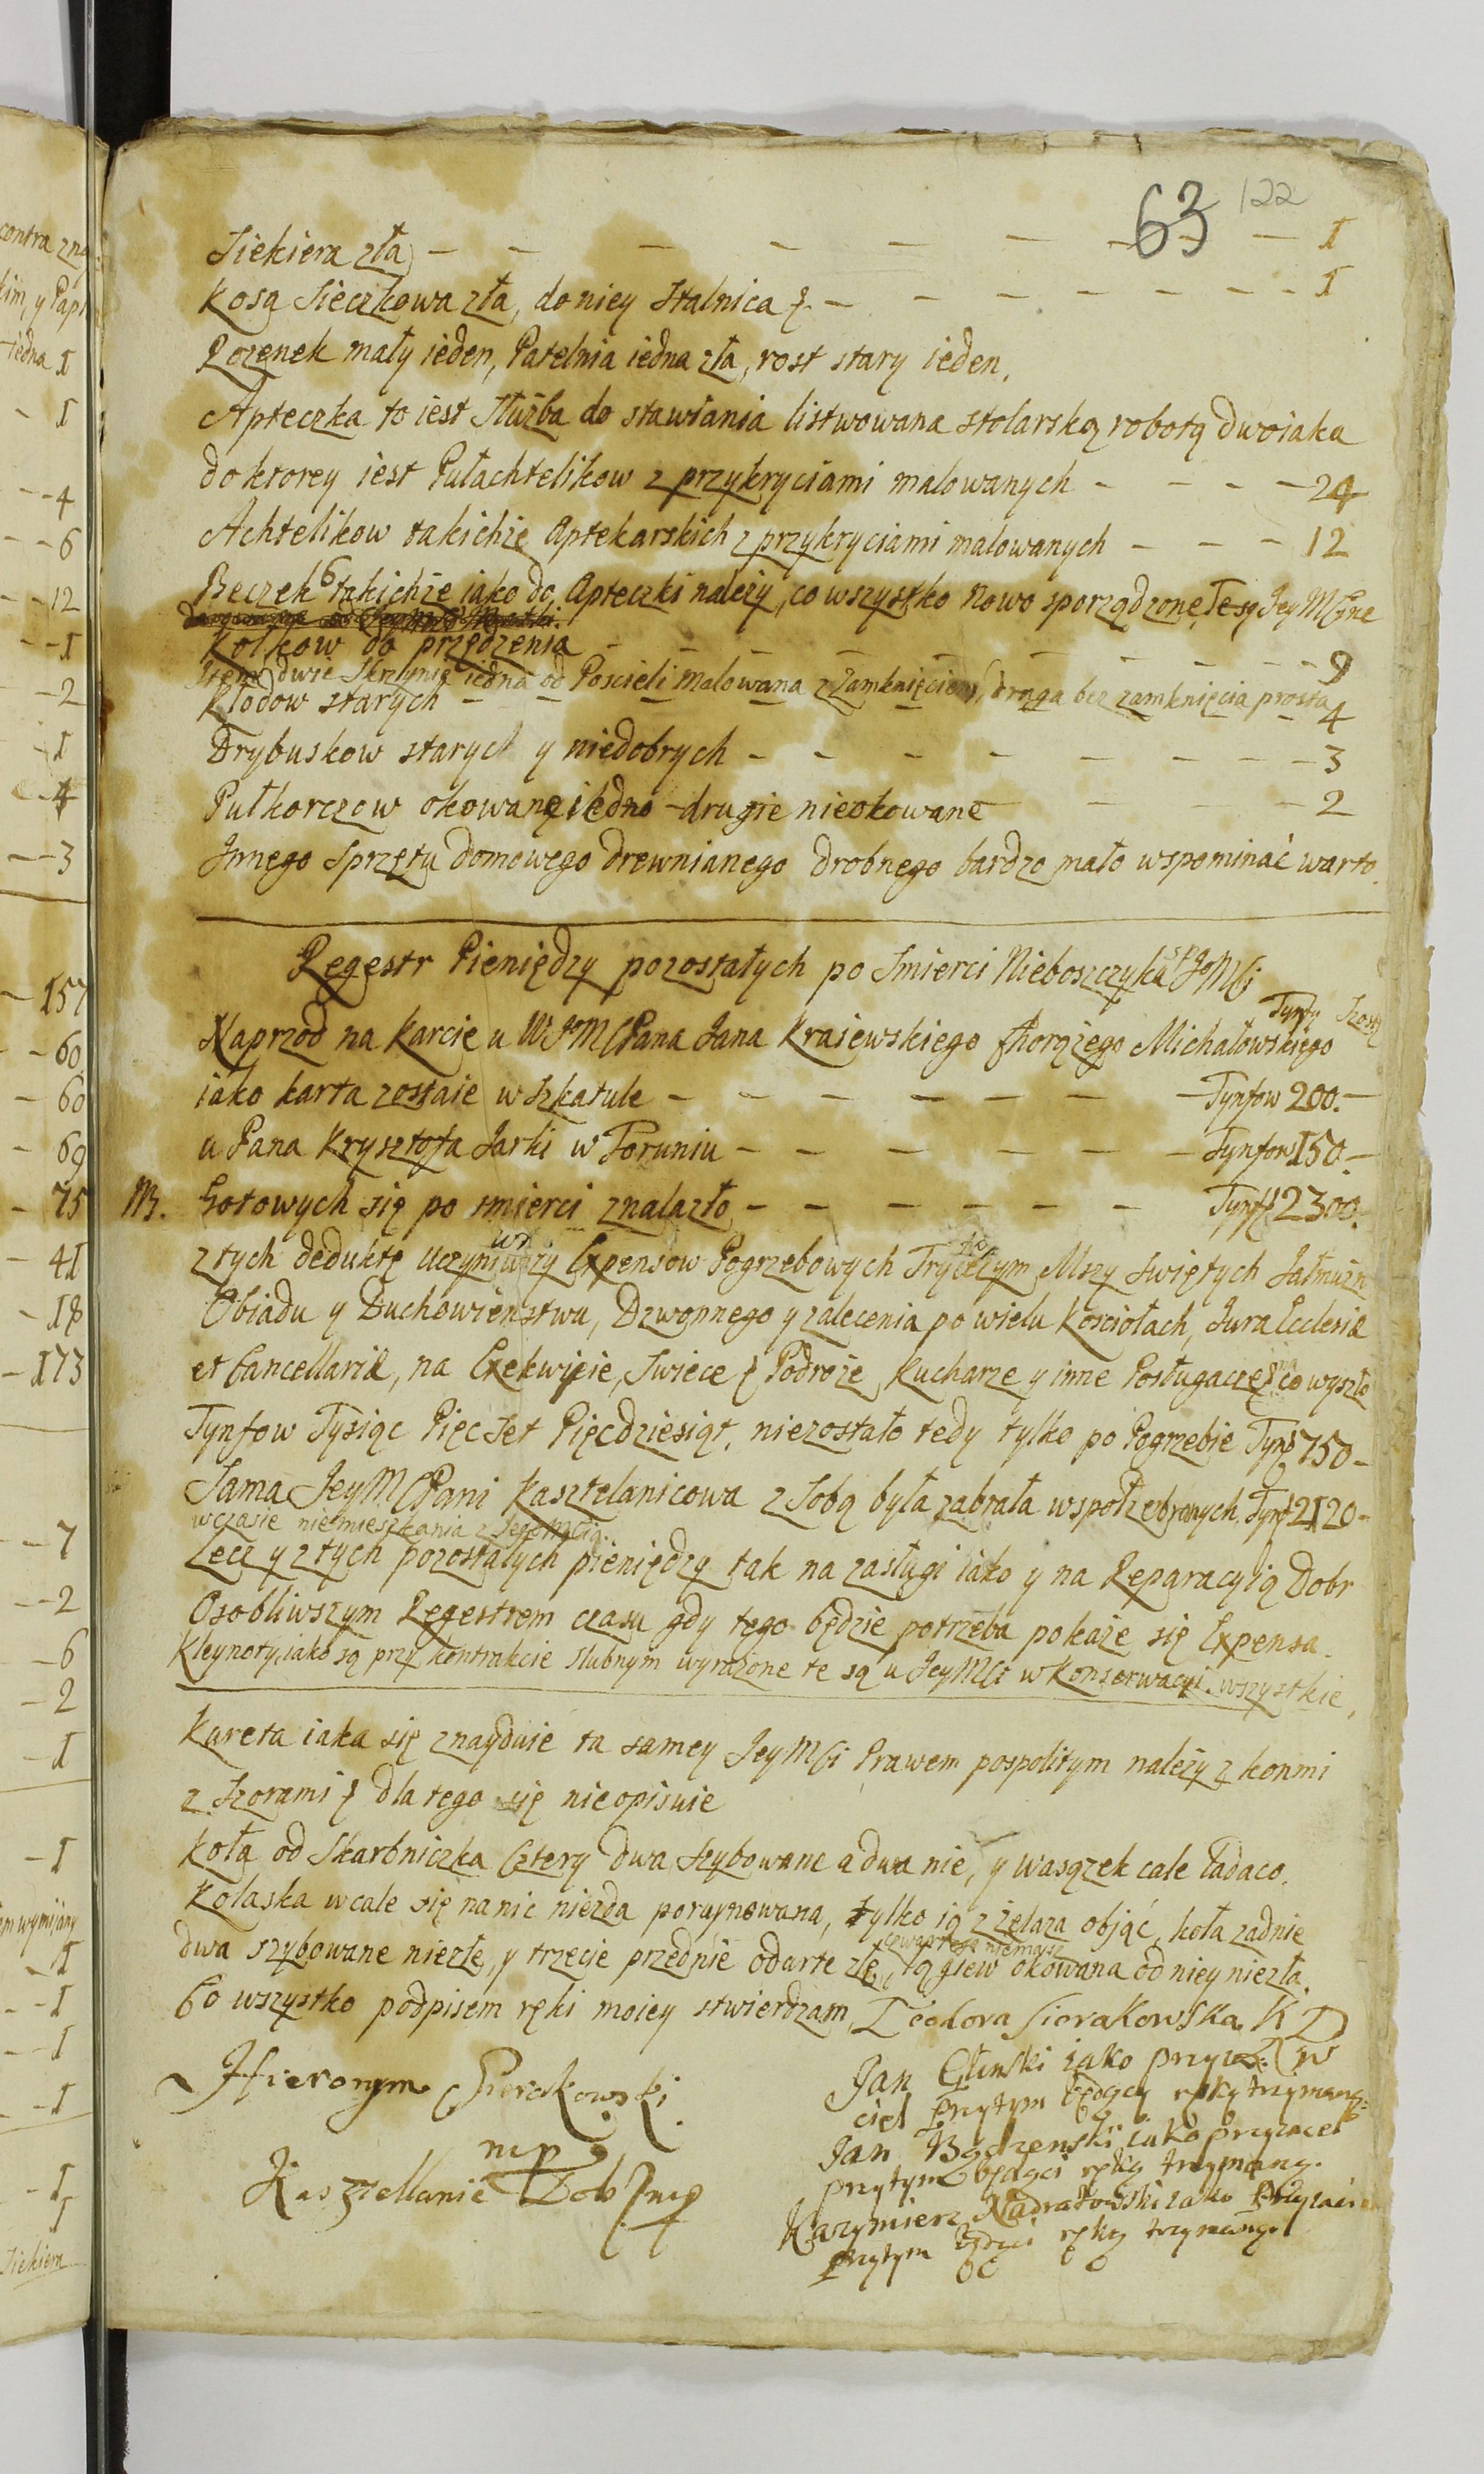 63 122
Siekiera zła – – – – – – – – I
Kosa Sieczkowa zła, do niey Stalnica – – – – – – – I
Rozenek mały ieden, Patelnia iedna zła, rost stary ieden.
Apteczka to iest Służba do stawiania listwowana stolarską robotą dwoiaka
do ktorey iest Pułachtelikow z przykryciami malowanych – – – – 24
Achtelikow takichże Aptekarskich z przykryciami malowanych – – – 12
Beczek 6 takichże iako do Apteczki należy, co wszystko nowo sporządzone, te są Jey Mći
Kołkow do przędzenia – – – – – – – – 9
Item dwie Skrzynie iedna od Poscieli malowana z Zamknięciem, druga bez zamknięcia prosta
Kłodow starych – – – – – – – – 4
Drybuskow starych y niedobrych – – – – – – – 3
Pułkorczow okowane iedno drugie nieokowane – – – 2
Innego Sprzętu domowego drewnianego drobnego bardzo mało wspominać warto.
Regestr Pieniędzy pozostałych po Smierci Nieboszczyka ś. p. JoMći
Tynfy Szost.
Naprzod na Karcie u W JoMći Pana Jana Kraiewskiego Chorążego Michałowskiego
iako karta zostaie w Szkatule – – – – – – Tynfow 200. –
u Pana Krysztofa Jarki w Toruniu – – – – – – Tynfow 150. –
NB. Gotowych się po smierci znalazło – – – – – – Tynf 2300.
z tych deduktę uczyniwszy Expensow Pogrzebowych Mszy Swiętych Jałmużn
Obiadu y Duchowienstwu, Dzwonnego y zalecenia po wielu Kosciołach, Jura Ecclesiæ
et Cancellariæ, na Exekwiie, Swiece Podroże Kucharze y inne Posługacze na co wyszło
Tynfow Tysiąc Pięc Set Pięcdziesiąt, niezostało tedy tylko po Pogrzebie Tynf 750 –
Sama Jey Mći Pani Kasztelanicowa z Sobą była zabrała wspołzebranych Tynf 2120 –
w czasie niemieszkania z Jego Mcią.
Lecz y z tych pozostałych pieniędzy tak na zasługi iako y na Reparacyią Dobr
Osobliwszym Regestrem czasu gdy tego będzie potrzeba pokaże się Expensa.
Kleynoty, iako są przy kontrakcie slubnym wyrażone te są u Jey Mći w Konserwacyi wszystkie,
Kareta iaka się znayduie ta samey Jey Mći Prawem pospolitym należy z konmi
z Szorami dla tego się nieopisuie
Koła od Skarbniczka Cztery dwa szybowane a dwa nie, y wasążek cale ladaco.
Kolaska wcale się na nic niezda poruynowana, tylko ią z żelaza obiąć, koła zadnie
czwartego niemasz
dwa szybowane niezłe, y trzecie przednie odarte złe, łągiew okowana od niey niezła.
Co wszystko podpisem ręki moiey stwierdzam, Teodora Sierakowska K D
Hieronym Sierakowski
mp
Kasztellanic Dob mp
Jan Gliński iako przyia-
ciel przytym będący ręką trzymaną
Jan Bądzenski iako przyiaciel
przytym będąci ręką trzymaną.
Kazymierz Nadratowski iako Przyiaciel
przytym będąci ręką trzymaną
contra zna
kim, y Pap
iedna I
– I
– – 4
– – 6
– – 12
– – I
– – 2
– I
– 4
– – 3
– 157
– 60
– 60
– 69
– 75
– 41
– 18
– 173
– – 7
– – 2
– 6
– 2
– I
– I
– I
– – I
– – I
– I
– I
I
Siekiera